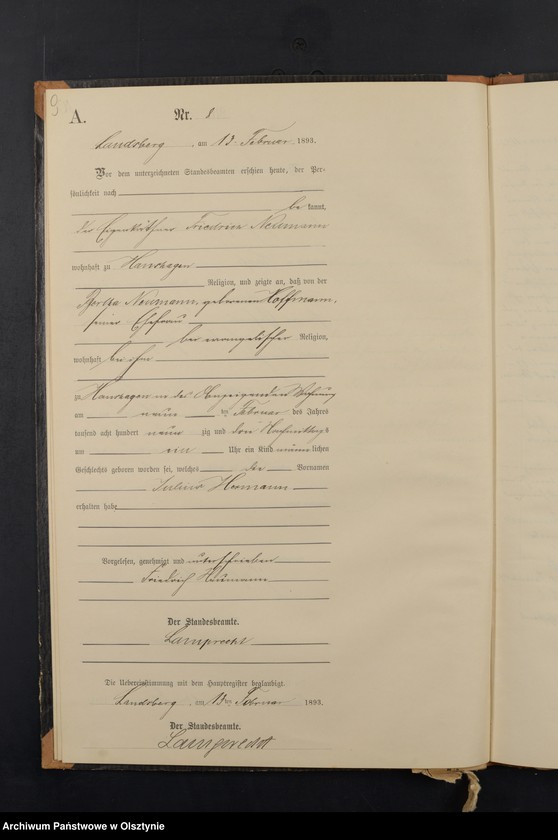 A.
Nr. 8
Landsberg, am 13 Februar 1893.
Vor dem unterzeichneten Standesbeamten erschien heute, der Per-
sönlichkeit nach
be kannt,
der Eigenkäthner Friedrich Neumann
wohnhaft zu Hanshagen
Religion, und zeigte an, daß von der
Bertha Neumann, geborenen Hoffmann,
seiner Ehefrau
evangelischer Religion,
wohnhaft bei ihm
zu Hanshagen in des Anzeigenden Wohnung
am neun ten Februar des Jahres
tausend acht hundert neun zig und drei Nachmittags
um ein Uhr ein Kind männ lichen
Geschlechts geboren worden sei, welches die Vornamen
Julius Hermann
erhalten habe
Vorgelesen, genehmigt und unterschrieben
Friedrich Neumann
Der Standesbeamte.
Lamprecht
Die Uebereinstimmung mit dem Hauptregister beglaubigt.
Landsberg, am 13ten Februar 1893.
Der Standesbeamte.
Lamprecht
Archiwum Państwowe w Olsztynie